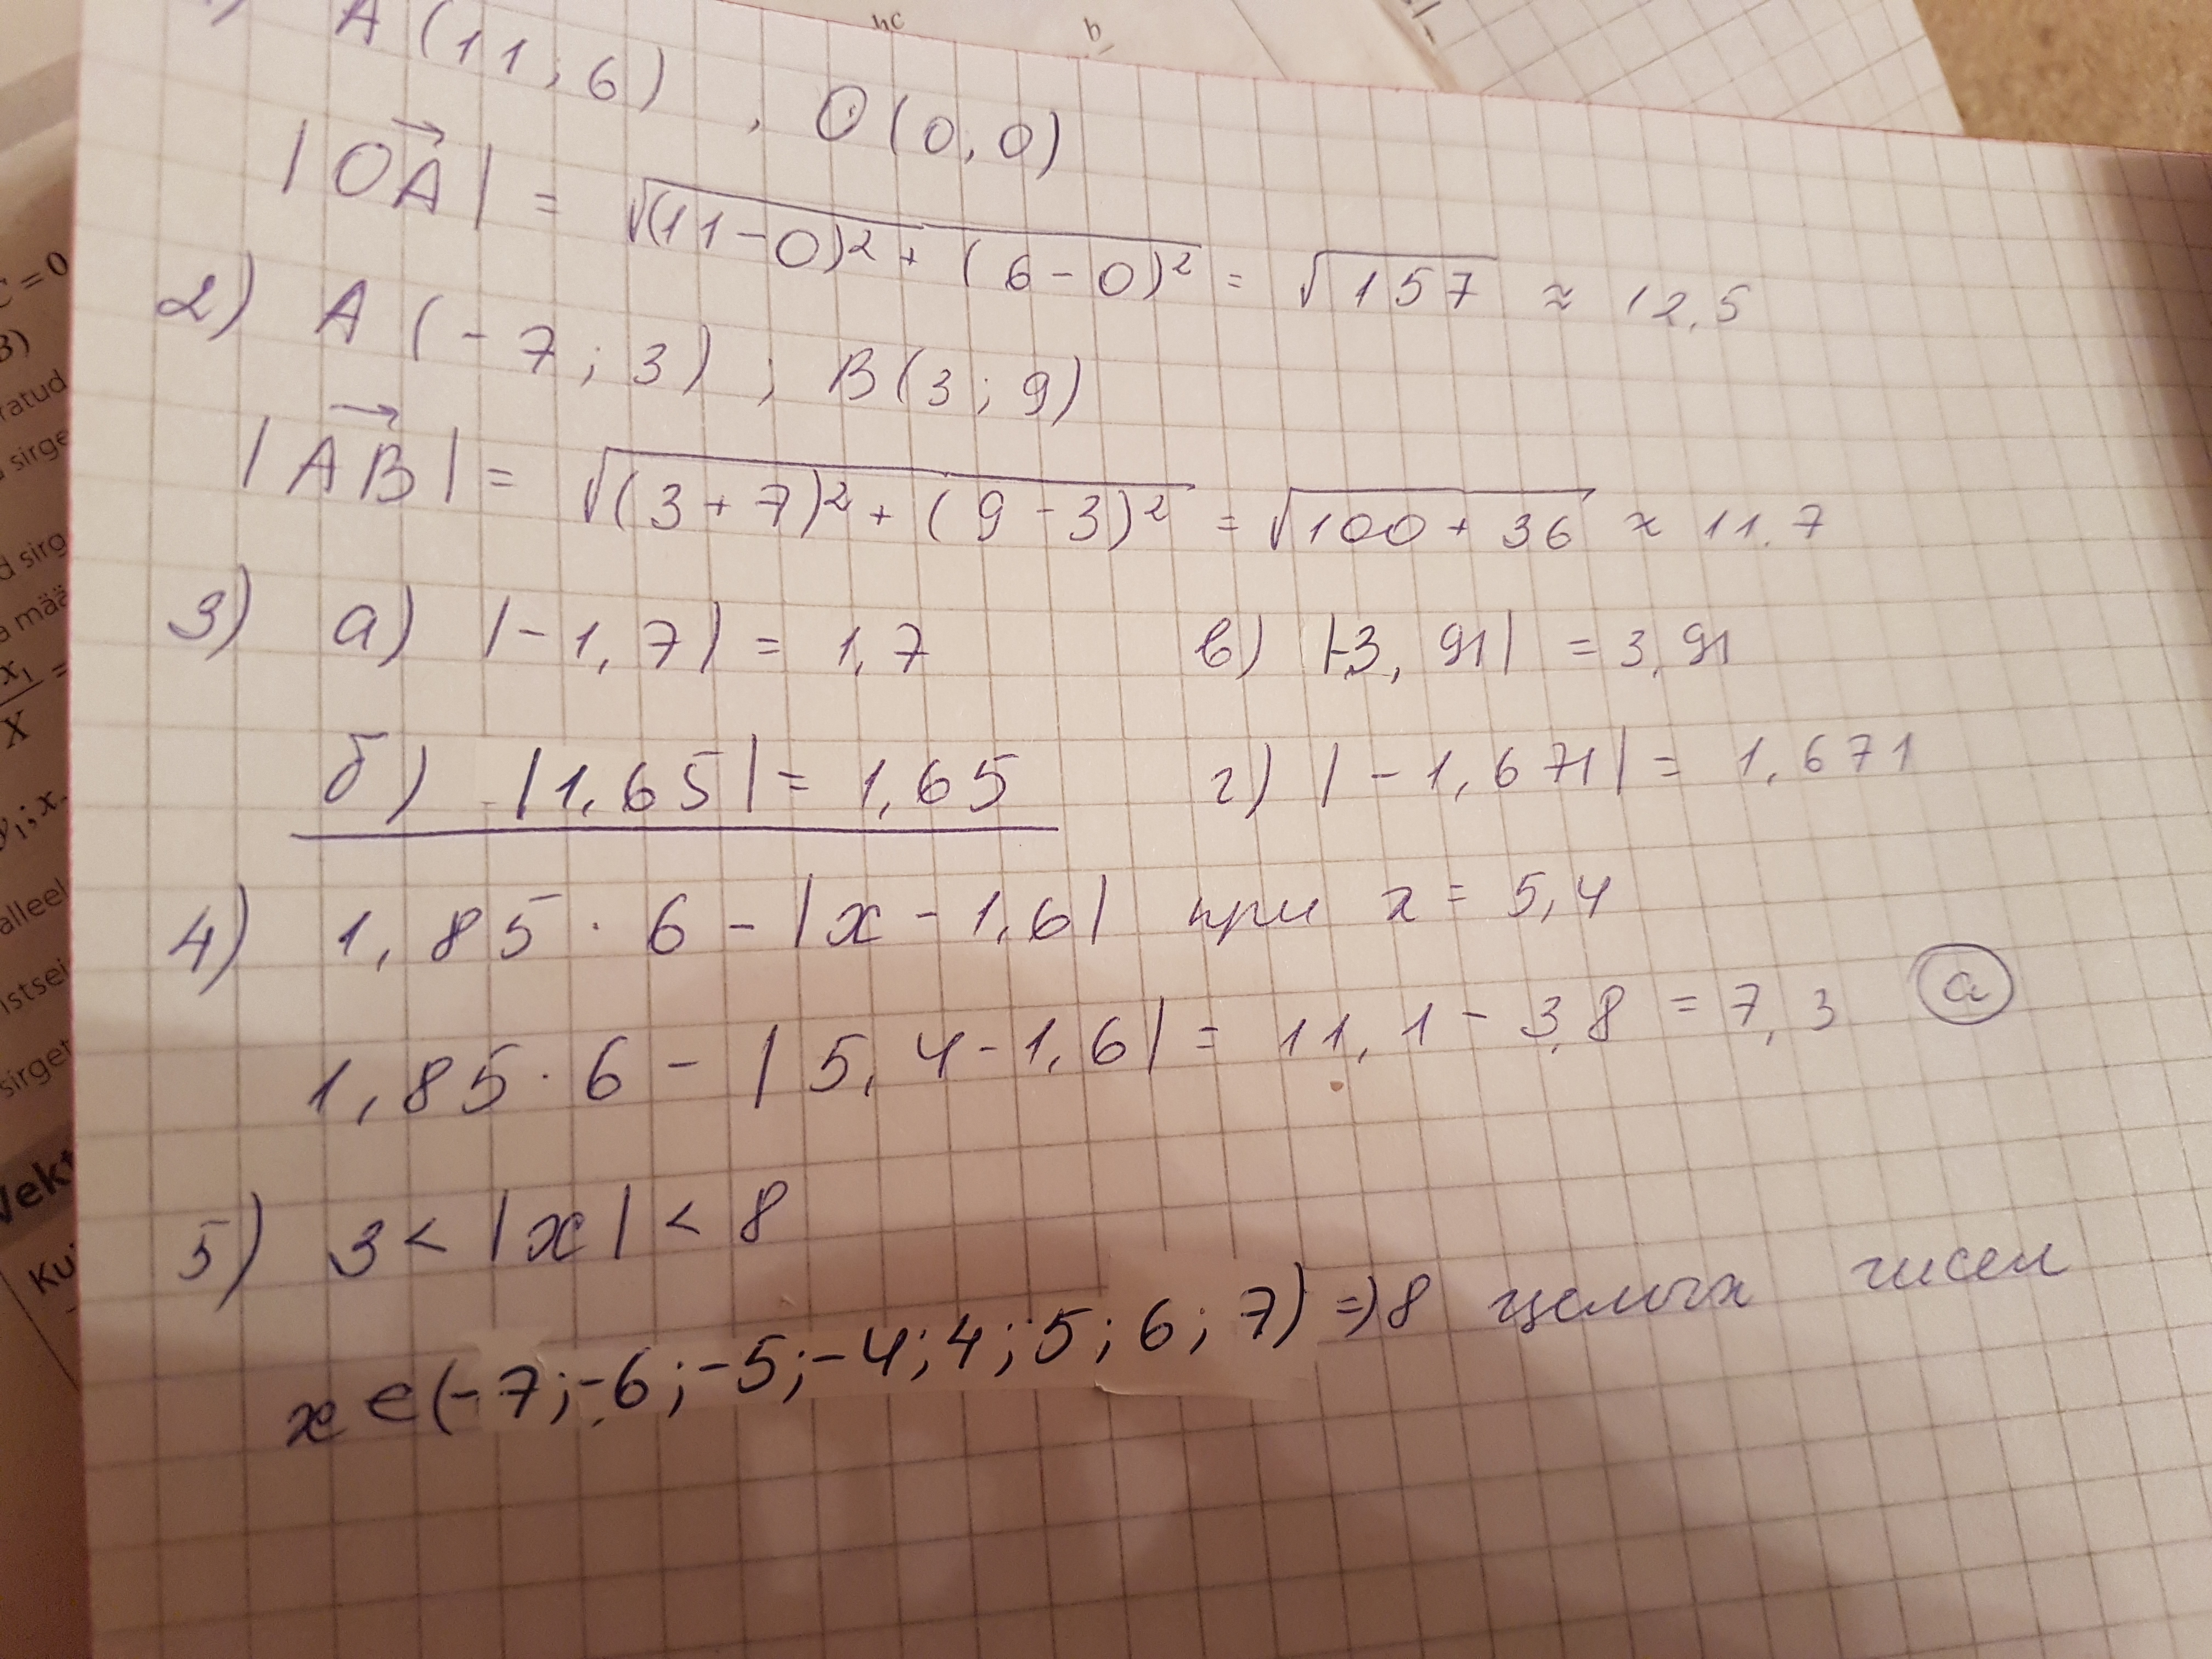 A(11;6), O(0,0)
|OA| = √(11-0)² + (6-0)² = √157 ≈ 12,5
2) A(-7;3); B(3;9)
|AB| = √(3+7)² + (9-3)² = √100+36 ≈ 11,7
3) а) |-1,7| = 1,7 в) |-3,91| = 3,91
б) |1,65| = 1,65 г) |-1,671| = 1,671
4) 1,85·6-|x-1,6| при x = 5,4
1,85·6-|5,4-1,6| = 11,1-3,8 = 7,3 а
5) 3<|x|<8
x∈(-7;-6;-5;-4;4;5;6;7) ⇒ 8 целых чисел
C = 0
B)
ratud
sirge
d sirg
a mää
x₁ =
X
alleel
istsei
sirget
Vekt
Ku
hc
b